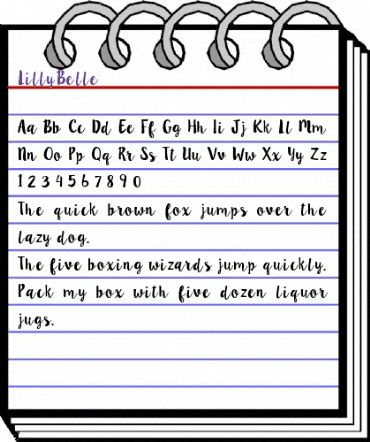 LillyBelle
Aa Bb Cc Dd Ee Ff Gg Hh Ii Jj Kk Ll Mm
Nn Oo Pp Qq Rr Ss Tt Uu Vv Ww Xx Yy Zz
1 2 3 4 5 6 7 8 9 0
The quick brown fox jumps over the
lazy dog.
The five boxing wizards jump quickly.
Pack my box with five dozen liquor
jugs.